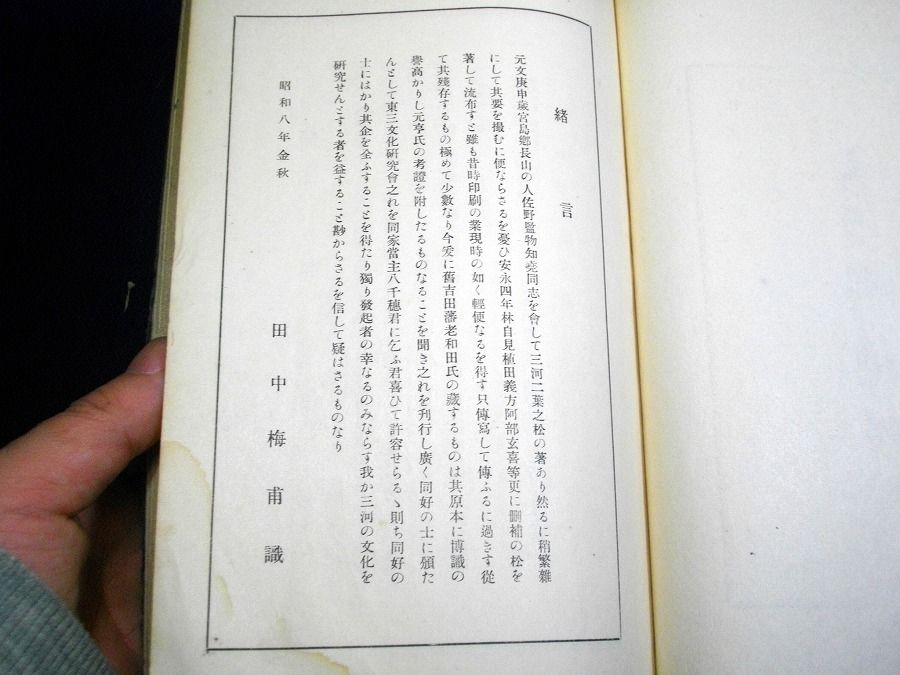 緒言
元文庚申歲宮島鄉長山の人佐野監物知堯同志を會して三河二葉之松の著あり然るに稍繁雜
にして其要を撮むに便ならさるを憂ひ安永四年林自見植田義方阿部玄喜等更に刪補の松を
著して流布すと雖も昔時印刷の業現時の如く輕便なるを得す只傳寫して傳ふるに過きす從
て其殘存するもの極めて少數なり今爰に舊吉田藩老和田氏の藏するものは其原本に博識の
譽高かりし元亨氏の考證を附したるものなることを聞き之れを刋行し廣く同好の士に頒た
んとして東三文化硏究會之れを同家當主八千穗君に乞ふ君喜ひて許容せらるゝ則ち同好の
士にはかり其企を全ふすることを得たり獨り發起者の幸なるのみならす我か三河の文化を
硏究せんとする者を益すること尠からさるを信して疑はさるものなり
昭和八年金秋
田中梅甫識